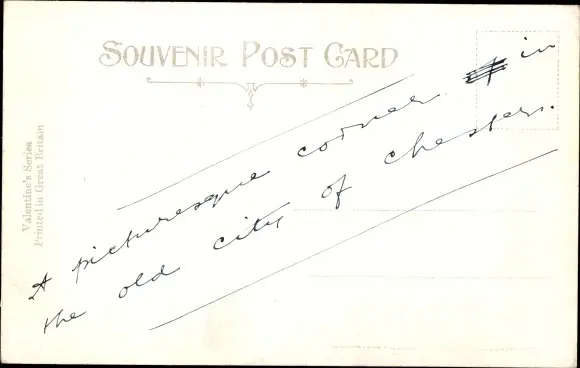 SOUVENIR POST CARD
Valentine's Series
Printed in Great Britain
A picturesque corner in
the old city of Chester.